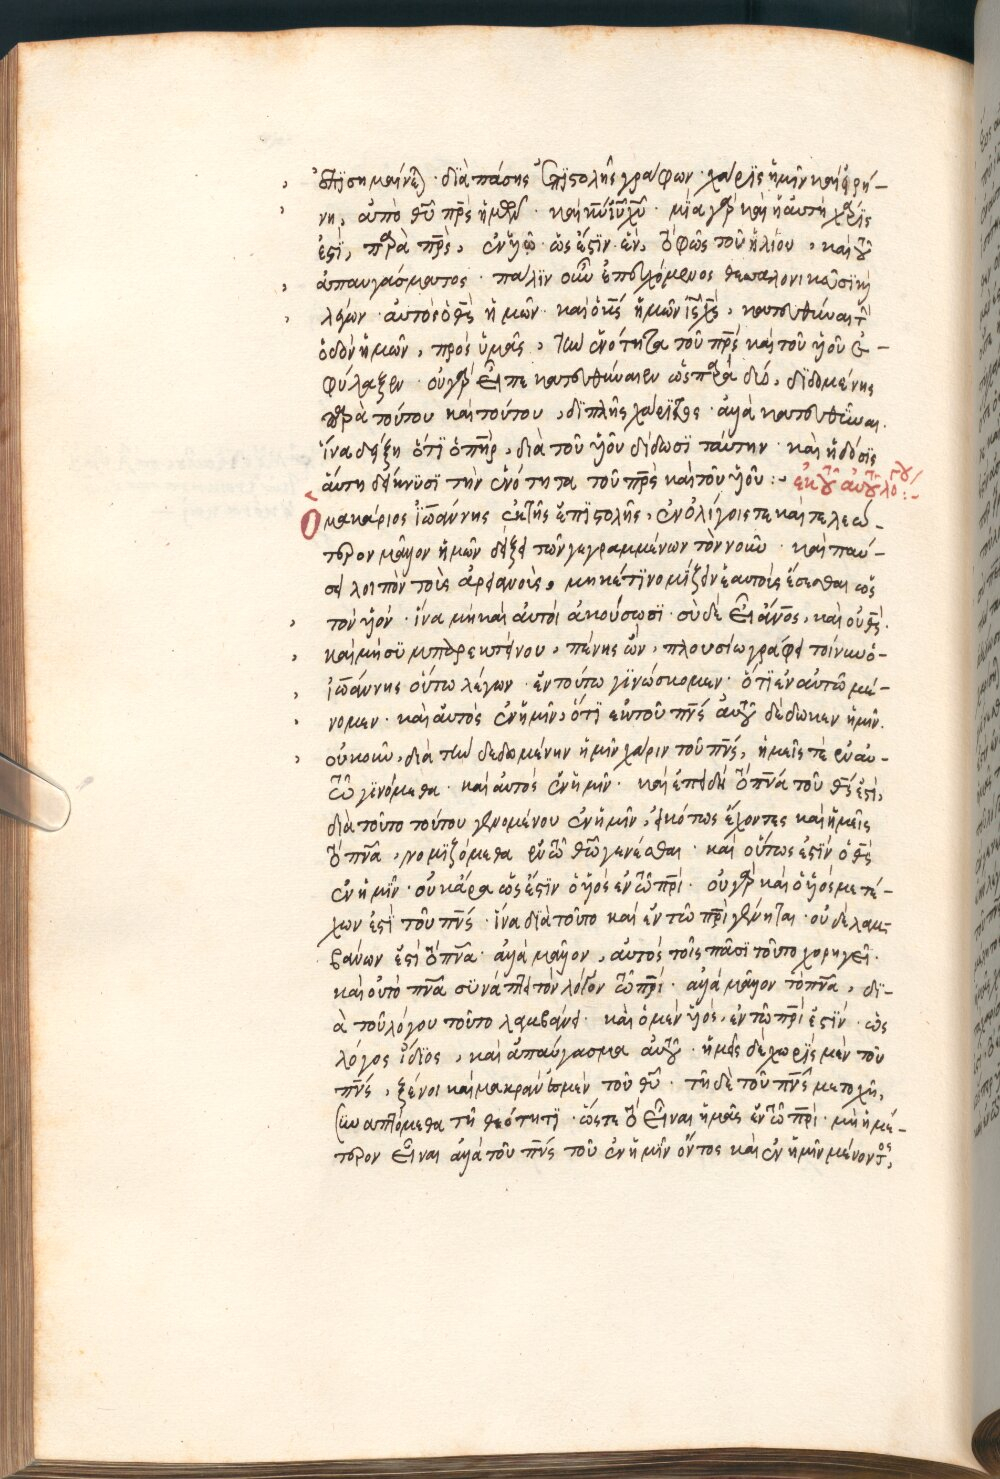 ἐπϊσημαίνεται · διὰ πάσης ἐπϊστολῆς γράφων · χάρϊς ἡμῖν καὶ εἰρή-
νη, ἀπὸ θῡ πρ̅ς ἡμῶν · καὶ κῡ ἰῡ χῡ · μία γὰρ καὶ ἡ αὐτὴ χάρϊς
ἐστὶ, παρὰ πρ̅ς, ἐν υἱῶ · ὥς ἐστϊν ἓν, τὸ φῶς τοῦ ἡλίου, καὶ τοῦ
ἀπαυγάσματος · πάλϊν οὖν ἐπευχόμενος θεσσαλονικεῦσϊ καὶ
λέγων · αὐτὸς ὁ θς̅ ἡμῶν · καὶ ὁ κς̅ ἡμῶν ις̅ χς̅, κατευθύναι τὴν
ὁδὸν ἡμῶν, πρὸς ὑμᾶς, τὴν ἑνότητα τοῦ πρ̅ς καὶ τοῦ υἱοῦ ἐ-
φύλαξεν · οὐ γὰρ εἶπε κατευθύναιεν ὡς παρὰ δύο, δϊδομένης
παρὰ τούτου καὶ τούτου, δϊπλῆς χάρϊτος · ἀλλὰ κατευθύναι.
ἵνα δείξη ὅτϊ ὁ πη̅ρ, διὰ τοῦ υἱοῦ δίδωσϊ ταύτην · καὶ ἡ δόσϊς
αὕτη δείκνυσϊ τὴν ἑνότητα τοῦ πρ̅ς καὶ τοῦ υἱοῦ :- ἐκ τοῦ αὐτοῦ λόγου :-
Ὁ μακάριος ἰωάννης ἐκ τῆς ἐπϊστολῆς, ἐν ὀλίγοις τε καὶ τελεώ-
τερον μᾶλλον ἡμῶν δείξει τῶν γεγραμμένων τὸν νοῦν · καὶ παύ-
σει λοιπὸν τοὺς ἀρειανοὺς, μηκέτϊ νομϊζειν ἑαυτοὺς ἔσεσθαι ὡς
τὸν υἱόν · ἵνα μὴ καὶ αὐτοὶ ἀκούσωσϊ · σὺ δὲ εἶ ἄνο̅ς, καὶ οὐ θς̅.
καὶ μὴ συμπαρεκτείνου, πένης ὢν, πλουσίω γράφει τοίνυν ὁ-
ἰωάννης οὕτω λέγων · ἐν τούτω γϊνώσκομεν · ὅτϊ ἐν αὐτῶ μέ-
νομεν · καὶ αὐτὸς ἐν ἡμῖν, ὅτϊ ἐκ τοῦ πν̅ς αὐτοῦ δέδωκεν ἡμῖν.
οὐκοῦν, διὰ τὴν δεδομένην ἡμῖν χάριν τοῦ πν̅ς, ἡμεῖς τὲ ἐν αυ-
τῶ γϊνόμεθα · καὶ αὐτὸς ἐν ἡμῖν · καὶ ἐπειδὴ τὸ πν̅α τοῦ θῡ ἐστὶ,
διὰ τοῦτο τούτου γενομένου ἐν ἡμῖν, εἰκότως ἔχοντες καὶ ἡμεῖς
τὸ πν̅α, νομιζόμεθα ἐν τῶ θῶ γενέσθαι · καὶ οὕτως ἐστϊν ὁ θς̅
ἐν ἡμῖν · οὐκ ἄρα ὥς ἐστϊν ὁ υἱὸς ἐν τῶ πρ̅ι · οὐ γὰρ καὶ ὁ υἱός μετέ-
χων ἐστὶ τοῦ πν̅ς · ἵνα διὰ τοῦτο καὶ ἐν τῶ πρ̅ι γένηται · οὐδὲ λαμ-
βάνων ἐστὶ τὸ πν̅α · ἀλλὰ μᾶλλον, αὐτὸς τοῖς πᾶσϊ τοῦτο χορηγεῖ.
καὶ οὐ τὸ πν̅α συνάπτει τὸν λόγον τῶ πρ̅ι · ἀλλὰ μᾶλλον τὸ πν̅α, δϊ-
ὰ τοῦ λόγου τοῦτο λαμβάνει · καὶ ὁ μὲν υἱὸς, ἐν τῶ πρ̅ι ἐστϊν · ὡς
λόγος ἴδϊος, καὶ ἀπαύγασμα αὐτοῦ · ἡμεῖς δὲ χωρϊς μὲν τοῦ
πν̅ς, ξένοι καὶ μακράν ἐσμὲν τοῦ θῡ · τῆ δὲ τοῦ πν̅ς μετοχῆ,
συναπτόμεθα τῆ θεότητϊ · ὥστε τὸ εἶναι ἡμᾶς ἐν τῶ πρ̅ι · μὴ ἡμέ-
τερον εἶναι ἀλλὰ τοῦ πν̅ς τοῦ ἐν ἡμῖν ὄντος καὶ ἐν ἡμῖν μένοντος,